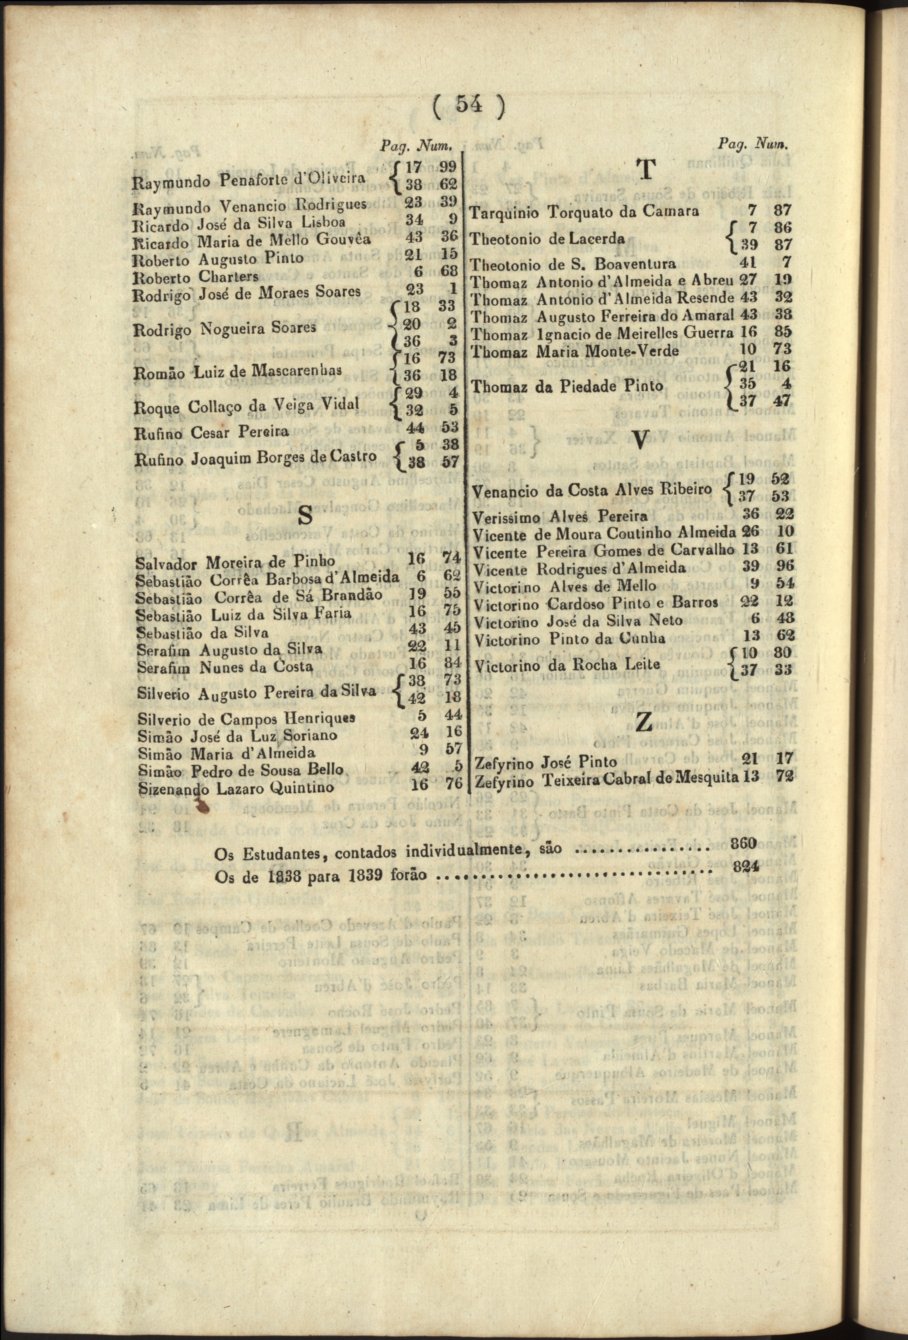 ( 54 )
Pag. Num.
Raymundo Penaforte d'Oliveira { 17 99
38 62
Raymundo Venancio Rodrigues 23 39
Ricardo José da Silva Lisboa 34 9
Ricardo Maria de Mello Gouvêa 43 36
Roberto Augusto Pinto 21 15
Roberto Charters 6 68
Rodrigo José de Moraes Soares 23 1
Rodrigo Nogueira Soares { 18 33
20 2
36 3
Romão Luiz de Mascarenhas { 16 73
36 18
Roque Collaço da Veiga Vidal { 29 4
32 5
Rufino Cesar Pereira 44 53
Rufino Joaquim Borges de Castro { 5 38
38 57
S
Salvador Moreira de Pinho 16 74
Sebastião Corrêa Barbosa d'Almeida 6 62
Sebastião Corrêa de Sá Brandão 19 55
Sebastião Luiz da Silva Faria 16 75
Sebastião da Silva 43 45
Serafim Augusto da Silva 22 11
Serafim Nunes da Costa 16 84
Silverio Augusto Pereira da Silva { 38 73
42 18
Silverio de Campos Henriques 5 44
Simão José da Luz Soriano 24 16
Simão Maria d'Almeida 9 57
Simão Pedro de Sousa Bello 42 5
Sizenando Lazaro Quintino 16 76
Pag. Num.
T
Tarquinio Torquato da Camara 7 87
Theotonio de Lacerda { 7 86
39 87
Theotonio de S. Boaventura 41 7
Thomaz Antonio d'Almeida e Abreu 27 19
Thomaz Antonio d'Almeida Resende 43 32
Thomaz Augusto Ferreira do Amaral 43 38
Thomaz Ignacio de Meirelles Guerra 16 85
Thomaz Maria Monte-Verde 10 73
Thomaz da Piedade Pinto { 21 16
35 4
37 47
V
Venancio da Costa Alves Ribeiro { 19 52
37 53
Verissimo Alves Pereira 36 22
Vicente de Moura Coutinho Almeida 26 10
Vicente Pereira Gomes de Carvalho 13 61
Vicente Rodrigues d'Almeida 39 96
Victorino Alves de Mello 9 54
Victorino Cardoso Pinto e Barros 22 12
Victorino José da Silva Neto 6 48
Victorino Pinto da Cunha 13 62
Victorino da Rocha Leite { 10 80
37 33
Z
Zefyrino José Pinto 21 17
Zefyrino Teixeira Cabral de Mesquita 13 72
Os Estudantes, contados individualmente, são ................ 860
Os de 1838 para 1839 forão .............................. 824